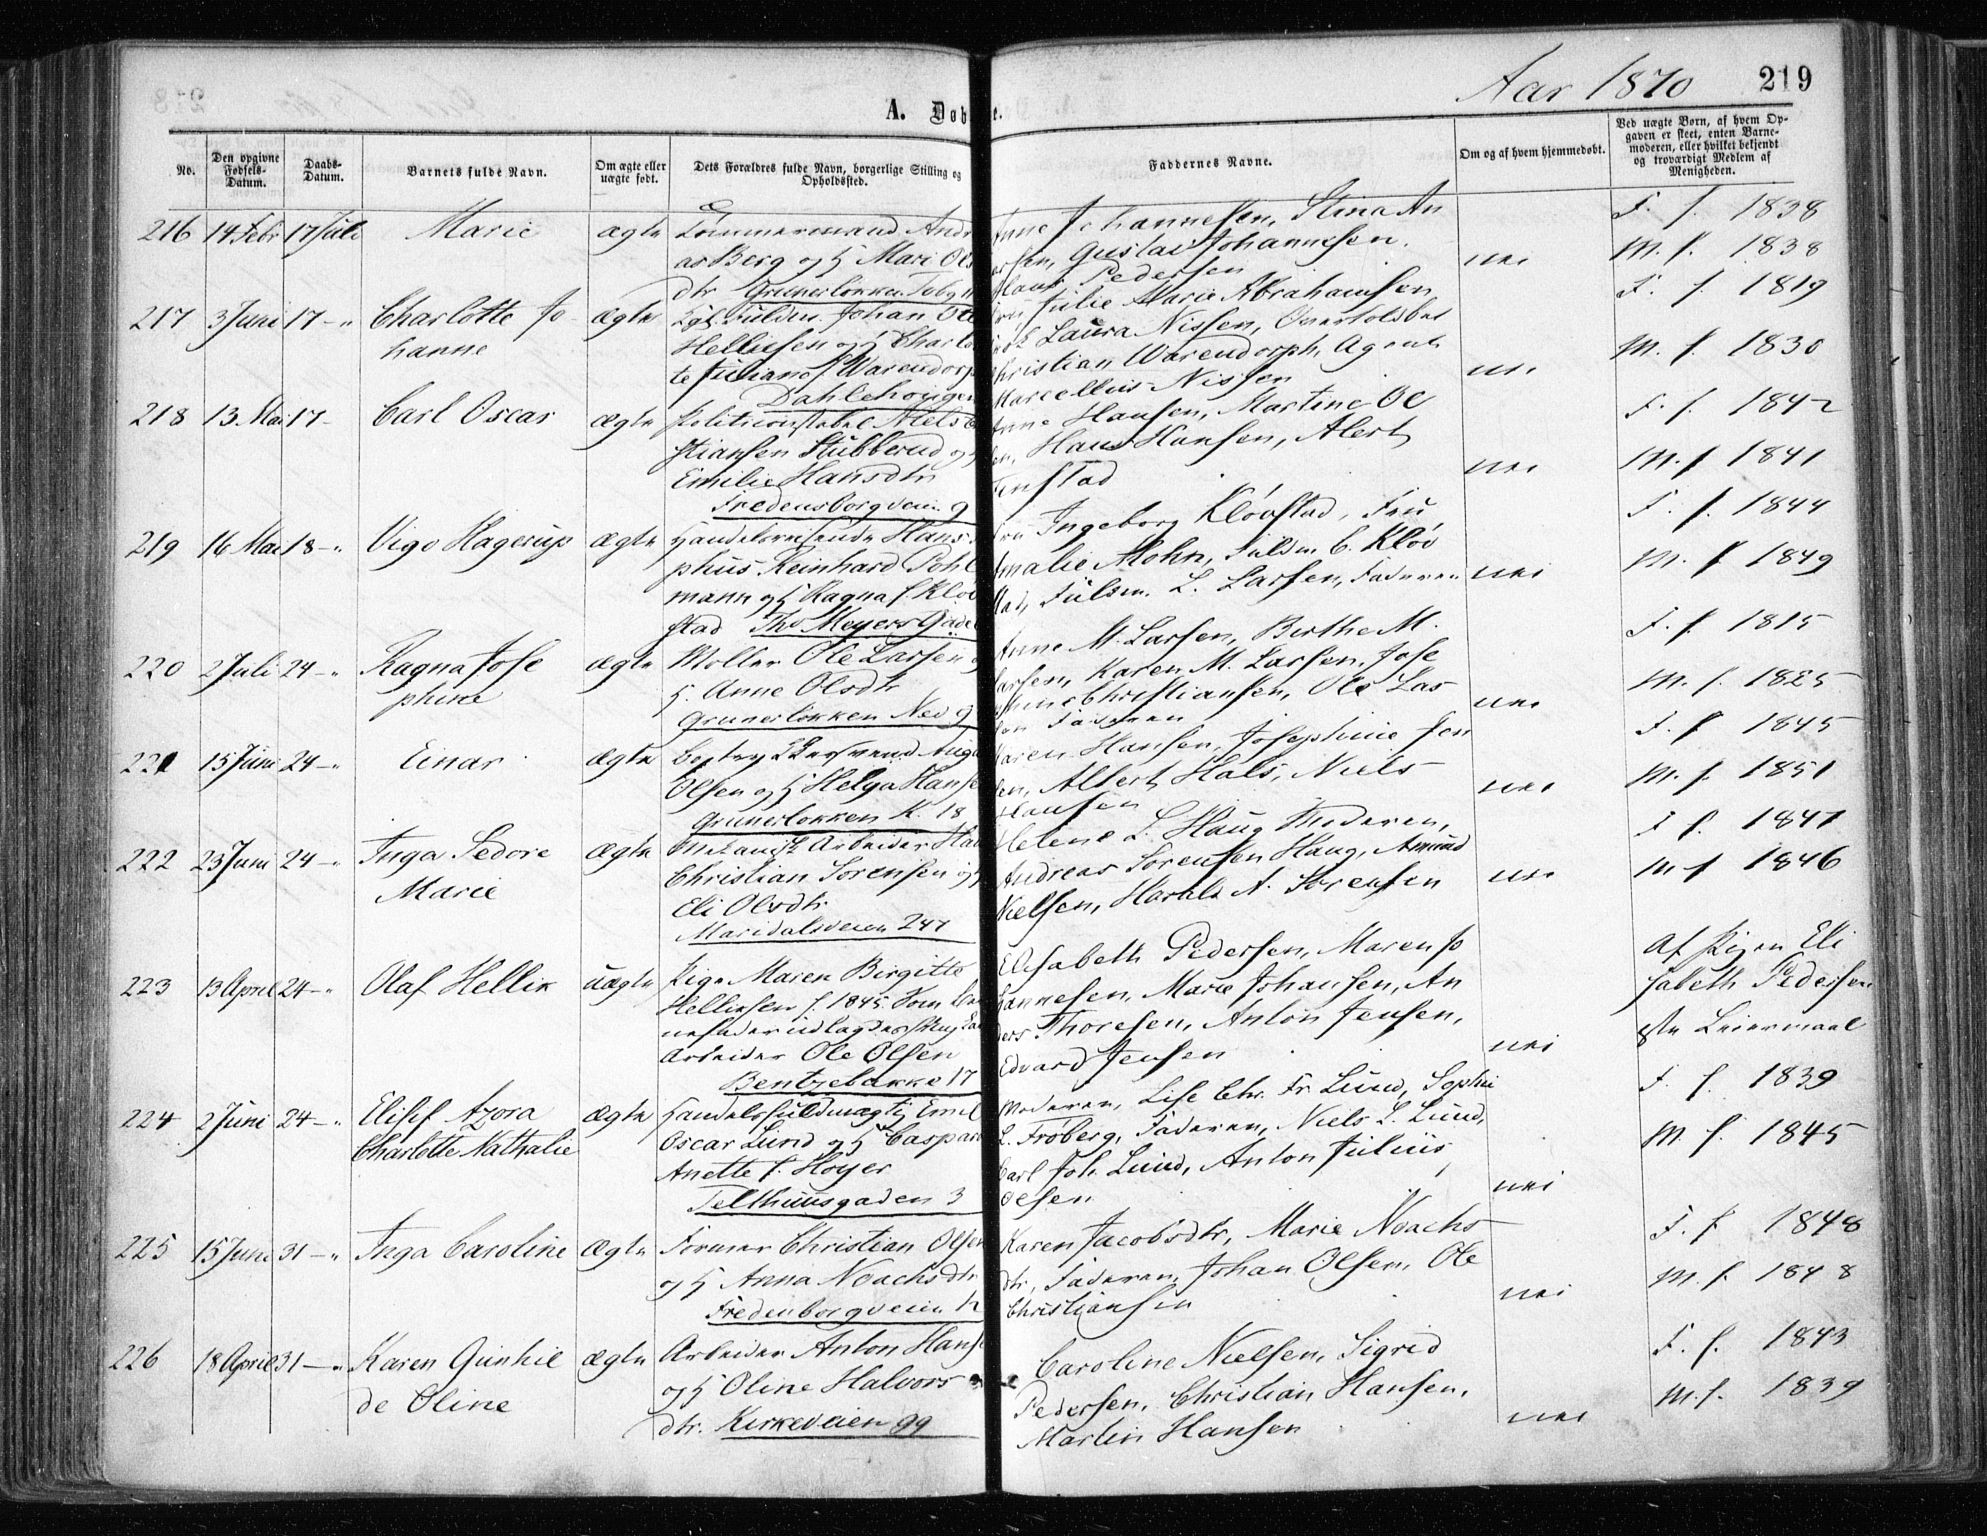 Aar 1870 219
A. Døb e.
No.
Den opgivne Fødsels-Datum.
Daabs-Datum.
Barnets fulde Navn.
Om ægte eller uægte født.
Dets Forældres fulde Navn, borgerlige Stilling og Opholdssted.
Faddernes Navne.
Om og af hvem hjemmedøbt.
Ved uægte Børn, af hvem Opgaven er skeet, enten Barnemoderen, eller hvilket bekjendt og troværdigt Medlem af Menigheden.
216 14 Febr 17 Juli Marie ægte
Tømmermand Andr
as Berg og H Mari Ols
dtr Grunerløkken
Anne Johannesen, Stina An
Gustav Johannesen.
Pedersen
nei
F. f. 1838
M. f. 1838
217 3 Juni 17 - " Charlotte Jo
hanne
ægte
Fuldm. Johan
Helliesen og H Charlot
te Juliane f. Warendorp
Dahlehougen
Julie Marie Abrahamsen
Laura Nissen, Overtoldbet
Christian Warendorph, Agent
Marcellius Nissen
nei
F. f. 1819
M. f. 1830
218 13 Mai 17 - Carl Oscar ægte
Politiconstabel Niels
stiansen Stubberud og H
Emilie Hansdtr
Fredensborgveien 9
Anne Hansen, Martine Ol
sen, Hans Hansen, Alert
Finstad
nei
F. f. 1842
M. f. 1841
219 16 Mai 18 - " Vigo Hagerup ægte
Handelsreisende Hans
phus Reinhard Pohl
mann og H Ragna f. Kløv
stad Ths Meyers Gade
Fru Ingeborg Kløvstad, Fru
Amalie Mohn, Fuldm. C. Kløv
stad, Fuldm. L. Larsen, Faderen
nei
F. f. 1844
M. f. 1849
220 2 Juli 24 - " Ragna Jose
phine
ægte
Møller Ole Larsen og
H Anne Olsdtr
Grunerløkken Neo 9
Anne M. Larsen, Birthe M.
Larsen, Karen M. Larsen, Jose
phine Christiansen, Ole Lar
sen Faderen
nei
F. f. 1815
M. f. 1825
221 15 Juni 24 - " Einar ægte
Bogtrykkersvend Aug
Olsen og H Helga Hanse
Grunerløkken K. 18
Karen Hansen, Josephine Jen
sen, Albert Hals, Niels
Hansen
nei
F. f. 1845
M. f. 1851
222 23 Juni 24 - " Inga Sedore
Marie
ægte
Mekanisk Arbeider Ha
Christian Sørensen og H
Eli Olsdtr
Maridalsveien 247
Helene L. Haug Moderen,
Andreas Sørensen Haug, Amund
Nielsen, Harald A. Sørensen
nei
F. f. 1847
M f 1846
223 13 April 24 - " Olaf Hellik uægte
Pige Maren Birgitte
Helliesen f. 1845. Som Bar
nefader udlagdes Ung
Arbeider Ole Olsen
Bentzebakke 17
Elisabeth Pedersen, Maren Jo
hannesen, Marie Johansen, An
ders Thoresen, Anton Jensen,
Edvard Jensen
nei
Af Pigen Eli
sabeth Pedersen
1ste Leiermaal
224 2 Juni 24 - " Elisif Azora
Charlotte Nathalie
ægte
Handelsfuldmægtig Emil
Oscar Lund og H Caspara
Anette f. Høyer
Telthuusgaden 3
Moderen, Lise Chr. Fr. Lund, Sophie
L. Frøberg, Faderen, Niels L. Lund,
Carl Joh. Lund, Anton Julius
Olsen
nei
F. f. 1839
M. f. 1845
225 15 Juni 31 - " Inga Caroline ægte
Former Christian Olsen
og H Anna Noachsdtr
Fredenborgveien 12
Karen Jacobsdtr, Marie Noachs
dtr, Faderen, Johan Olsen, Ole
Christiansen
nei
F. f. 1848
M. f. 1848
226 18 April 31 - " Karen Gunhil
de Oline
ægte
Arbeider Anton Hans
og H Oline Halvors
dtr. Kirkeveien 99
Caroline Nielsen, Sigrid
Pedersen, Christian Hansen,
Martin Hansen
nei
F. f. 1843
M. f. 1839